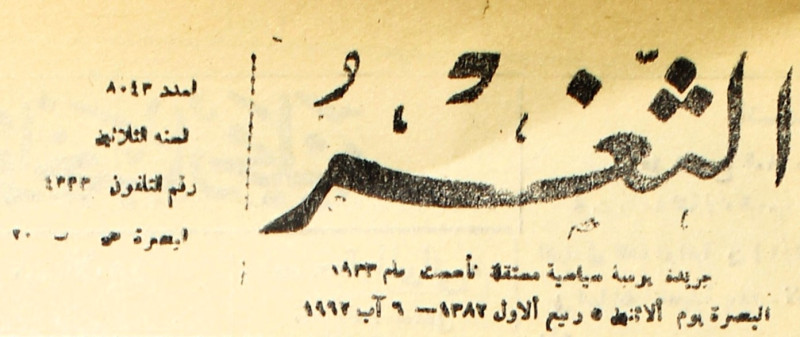 الثغر
جريدة يومية سياسية مستقلة تأسست عام ١٩٣٣
البصرة يوم ألاثنين ٥ ربيع ألاول ١٣٨٢ — ٦ آب ١٩٦٢
العدد ٨٠٤٣
السنه الثلاثين
رقم التلفون ٤٣٣٣
البصرة ص ب ٢٠